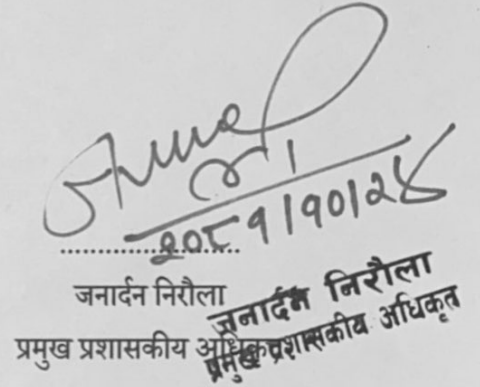 २०८१।१०।२४
....................
जनार्दन निरौला
प्रमुख प्रशासकीय अधिकृत
जनार्दन निरौला
प्रमुख प्रशासकीय अधिकृत